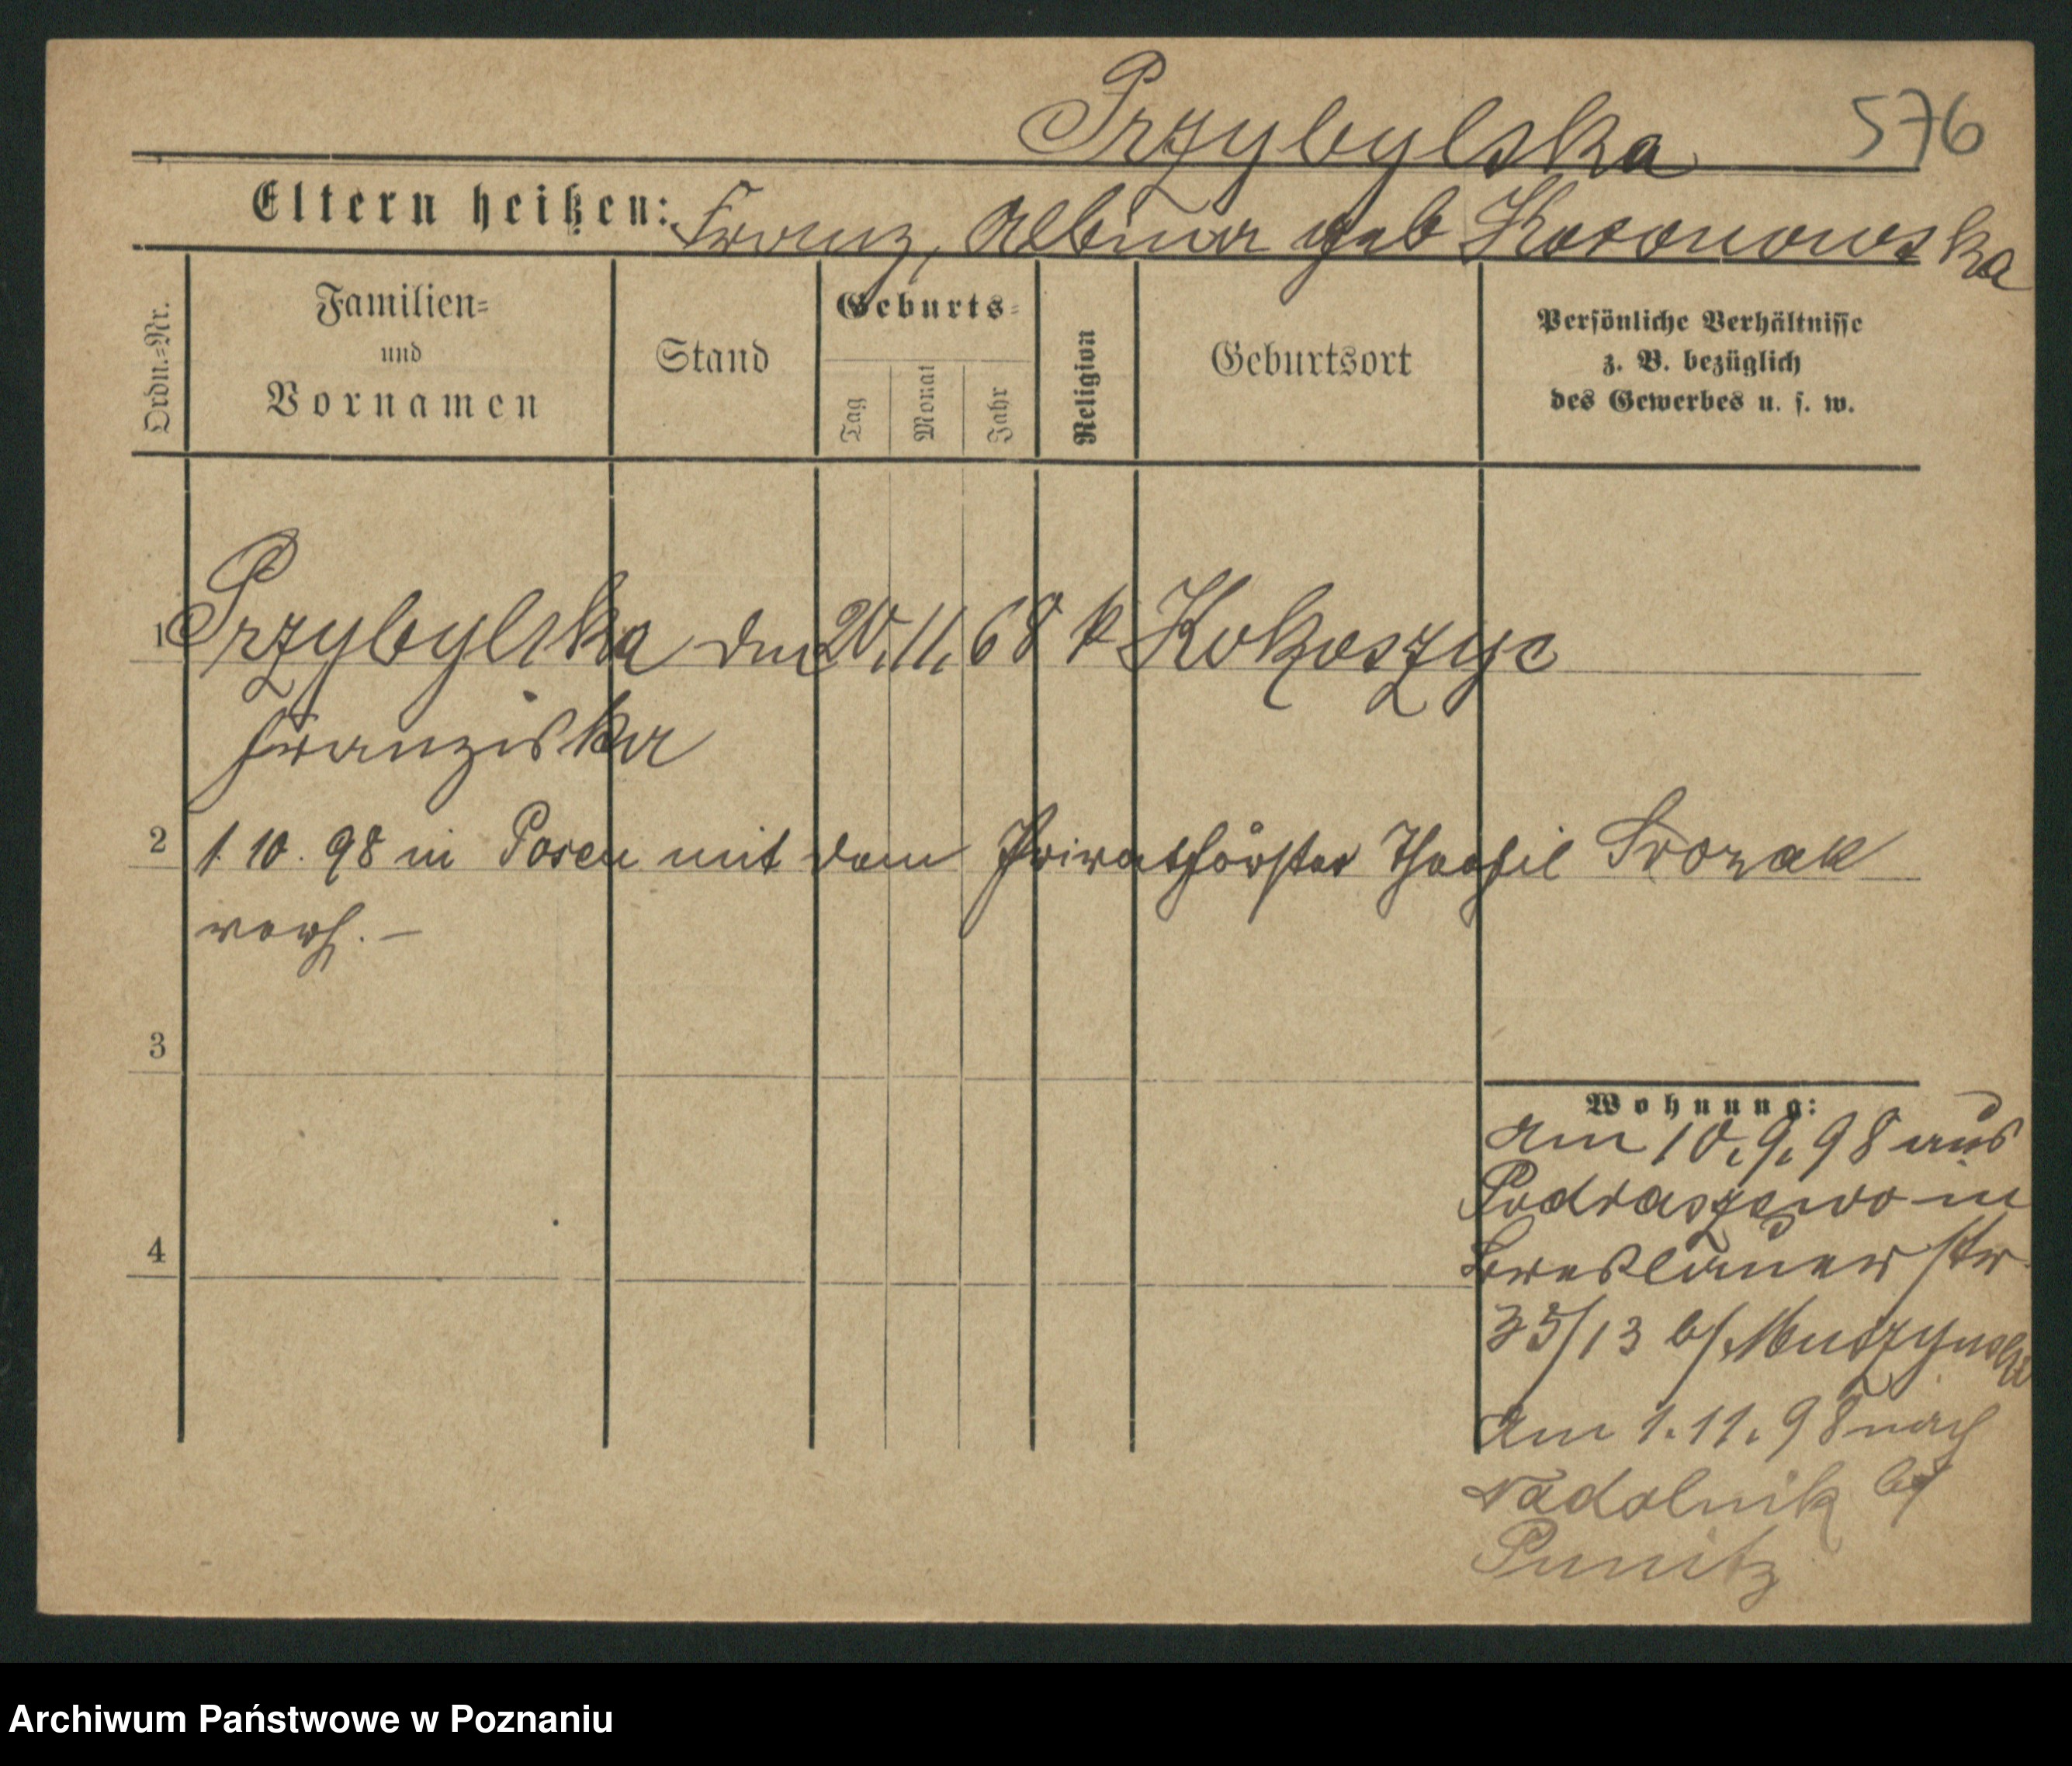 Przybylska 576
Eltern heißen: Franz, Albina geb Kosonowska
Ordn.=Nr.
Familien=
und
Vornamen
Stand
Geburts=
Tag
Monat
Jahr
Religion
Geburtsort
Persönliche Verhältnisse
z. B. bezüglich
des Gewerbes u. s. w.
1 Przybylska 20. 11. 68 k Kokoszyc
Franziska
2 1. 10. 98 in Posen mit dem Privatförster Theofil
verh. –
3
4
Wohnung:
am 10. 9. 98 aus
in
Breslauer str
35/13 b/
am 1. 11. 98 nach
Nadolnik by
Punitz
Archiwum Państwowe w Poznaniu